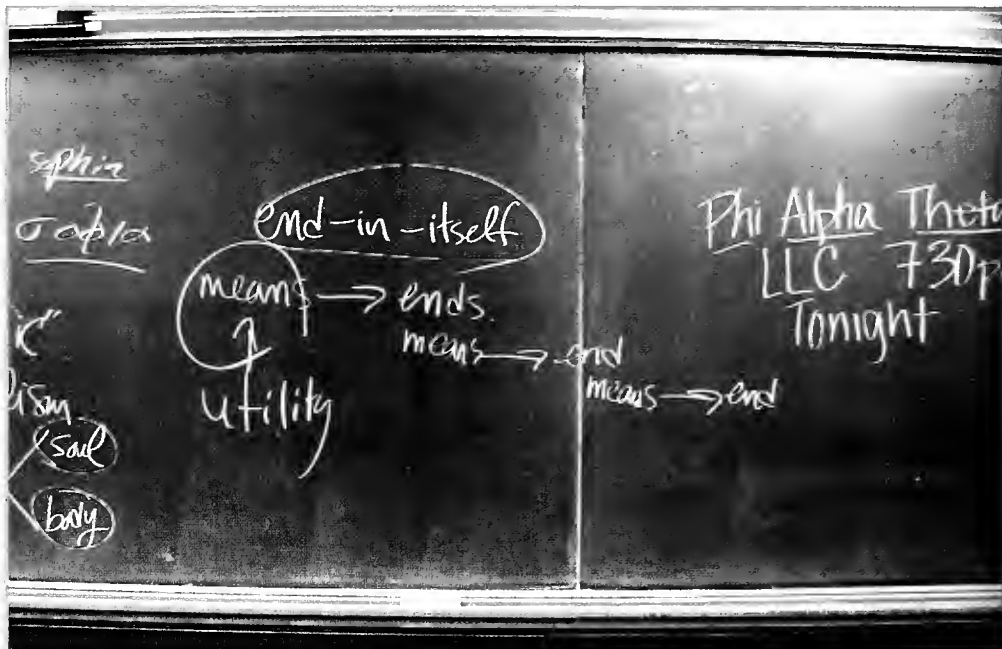 sophia
σοφια
ic"
lism
soul
body
end-in-itself
means → ends.
means → end
means → end
utility
Phi Alpha Theta
LLC 730p
Tonight